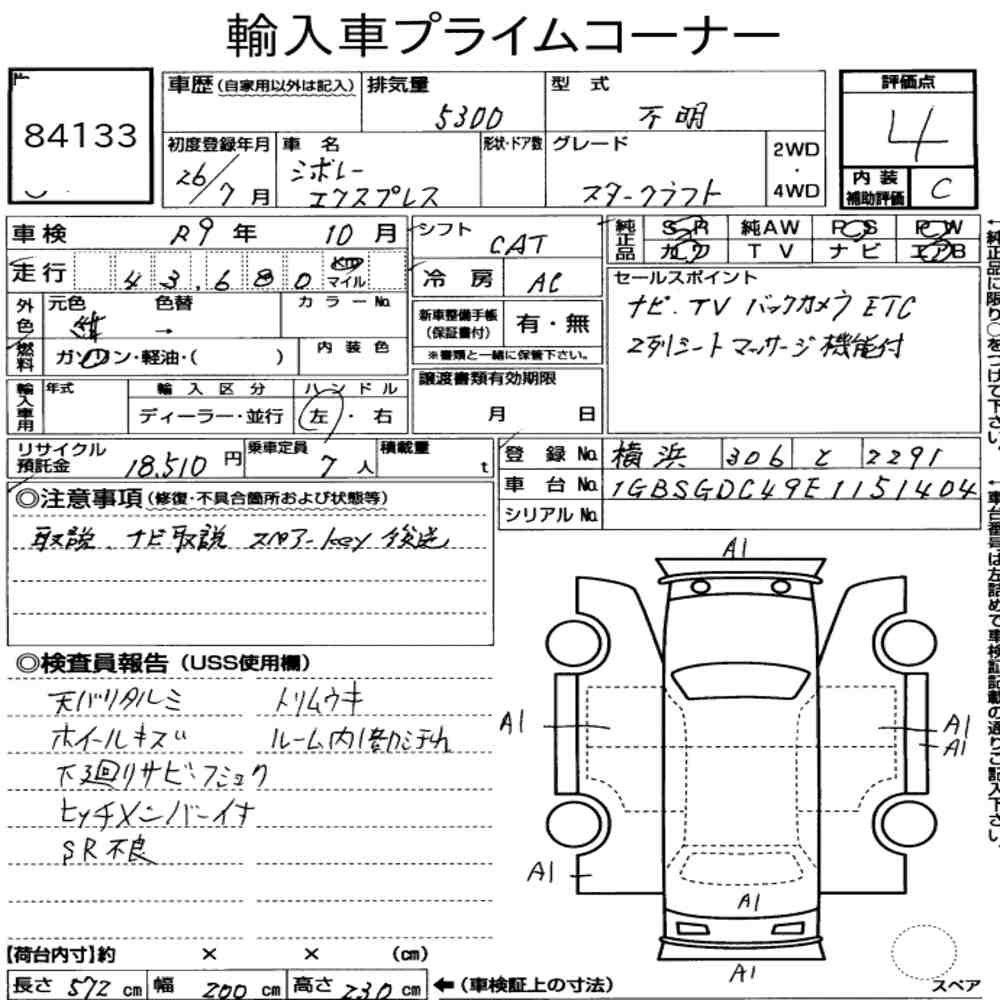 輸入車プライムコーナー
84133
車歴(自家用以外は記入) 排気量 5300 型式 不明
評価点 4
内装補助評価 C
初度登録年月 26/7月 車名 シボレー エクスプレス 形状・ドア数 グレード スタークラフト 2WD・4WD
車検 R9年 10月
シフト CAT
純正品 SR 純AW PS PW
カワ TV ナビ エアB
走行 43,680 km マイル
冷房 AC
セールスポイント
ナビ.TV バックカメラ ETC
2列シートマッサージ機能付
外色 元色 紺 色替 → カラーNo.
新車整備手帳(保証書付) 有・無
※書類と一緒に保管下さい。
燃料 ガソリン・軽油・( ) 内装色
譲渡書類有効期限
月 日
輸入車用 年式 輸入区分 ディーラー・並行 ハンドル 左・右
リサイクル預託金 18,510円 乗車定員 7人 積載量 t
登録No. 横浜 306 と 2291
車台No. 1GBSGDC49E1151404
シリアルNo.
◎注意事項(修復・不具合箇所および状態等)
取説、ナビ取説 スペアーkey 後送
◎検査員報告(USS使用欄)
天バリタルミ トリムウキ
ホイールキズ ルーム内1部ヨゴレ
下廻りサビ・フショク
ヒッチメンバーイナ
SR不良
A1
A1
A1
A1
A1
A1
A1
【荷台内寸】約 × × (cm)
長さ 572 cm 幅 200 cm 高さ 230 cm ←(車検証上の寸法)
スペア
←純正品に限り○をつけて下さい。
←車台番号は左詰めで車検証記載の通りご記入下さい。